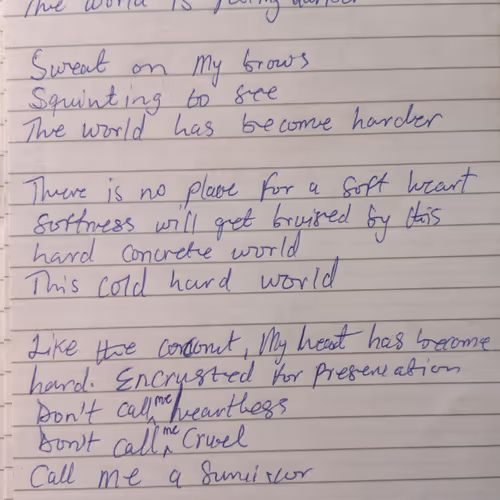 The world is
Sweat on my brows
Squinting to see
The world has become harder
There is no place for a soft heart
Softness will get bruised by this
hard concrete world
This cold hard world
Like the coconut, My heart has become
hard. Encrusted for preservation
Don't call me heartless
Don't call me cruel
Call me a Survivor